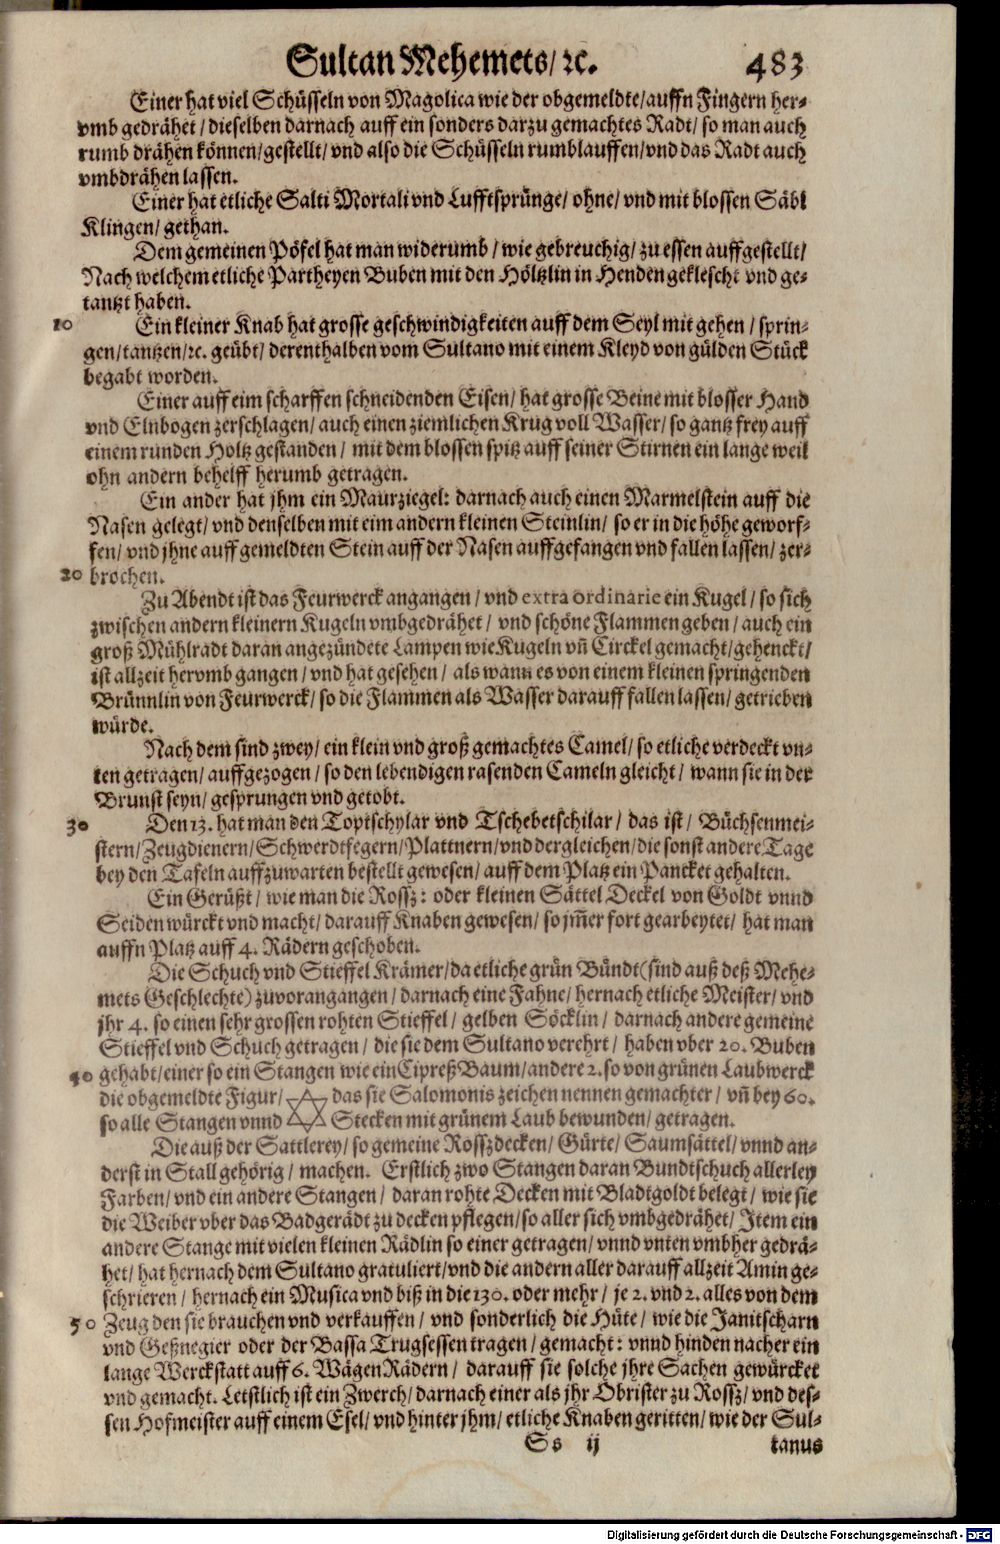 Sultan Mehemets/ ꝛc. 483
Einer hat viel Schüsseln von Magolica wie der obgemeldte/auffn Fingern her⸗
vmb gedrähet / dieselben darnach auff ein sonders darzu gemachtes Radt/ so man auch
rumb drähen können/gestellt/ vnd also die Schüsseln rumblauffen/vnd das Radt auch
vmbdrähen lassen.
Einer hat etliche Salti Mortali vnd Lufftsprünge/ ohne/ vnd mit blossen Säbl
Klingen/ gethan.
Dem gemeinen Pöfel hat man widerumb / wie gebreuchig/ zu essen auffgestellt/
Nach welchem etliche Partheyen Buben mit den Höltzlin in Henden geklescht vnd ge⸗
tantzt haben.
10 Ein kleiner Knab hat grosse geschwindigkeiten auff dem Seyl mit gehen / sprin⸗
gen/tantzen/ꝛc. geübt/ derenthalben vom Sultano mit einem Kleyd von gülden Stück
begabt worden.
Einer auff eim scharffen schneidenden Eisen/ hat grosse Beine mit blosser Hand
vnd Elnbogen zerschlagen/ auch einen ziemlichen Krug voll Wasser/ so gantz frey auff
einem runden Holtz gestanden / mit dem blossen spitz auff seiner Stirnen ein lange weil
ohn andern behelff herumb getragen.
Ein ander hat jhm ein Maurziegel: darnach auch einen Marmelstein auff die
Nasen gelegt/ vnd denselben mit eim andern kleinen Steinlin/ so er in die höhe geworf⸗
fen/ vnd jhne auff gemeldten Stein auff der Nasen auffgefangen vnd fallen lassen/ zer⸗
20 brochen.
Zu Abendt ist das Feurwerck angangen / vnd extra ordinarie ein Kugel/ so sich
zwischen andern kleinern Kugeln vmbgedrähet / vnd schöne Flammen geben / auch ein
groß Mühlradt daran angezündete Lampen wie Kugeln vñ Circkel gemacht/gehenckt/
ist allzeit hervmb gangen / vnd hat gesehen / als wann es von einem kleinen springenden
Brünnlin von Feurwerck/ so die Flammen als Wasser darauff fallen lassen/ getrieben
würde.
Nach dem sind zwey/ ein klein vnd groß gemachtes Camel/ so etliche verdeckt vn⸗
ten getragen/ auffgezogen / so den lebendigen rasenden Cameln gleicht / wann sie in der
Brunst seyn/ gesprungen vnd getobt.
30 Den 13. hat man den Toptschylar vnd Tschebetschilar / das ist/ Büchsenmei⸗
stern/Zeugdienern/Schwerdtfegern/Plattnern/vnd dergleichen/die sonst andere Tage
bey den Tafeln auffzuwarten bestellt gewesen/ auff dem Platz ein Pancket gehalten.
Ein Gerüßt/ wie man die Rossz: oder kleinen Sättel Deckel von Goldt vnnd
Seiden würckt vnd macht/ darauff Knaben gewesen/ so jm̃er fort gearbeytet/ hat man
auffn Platz auff 4. Rädern geschoben.
Die Schuch vnd Stieffel Krämer/da etliche grün Bündt(sind auß deß Mehe⸗
mets Geschlechte) zuvorangangen / darnach eine Fahne/ hernach etliche Meister/ vnd
jhr 4. so einen sehr grossen rohten Stieffel / gelben Söcklin / darnach andere gemeine
Stieffel vnd Schuch getragen / die sie dem Sultano verehrt / haben vber 20. Buben
40 gehabt/einer so ein Stangen wie ein Cipreß Baum/andere 2. so von grünen Laubwerck
die obgemeldte Figur/ das sie Salomonis zeichen nennen gemachter / vñ bey 60.
so alle Stangen vnnd Stecken mit grünem Laub bewunden/ getragen.
Die auß der Sattlerey/ so gemeine Rosszdecken/ Gürte/ Saumsättel/ vnnd an⸗
derst in Stall gehörig / machen. Erstlich zwo Stangen daran Bundtschuch allerley
Farben/ vnd ein andere Stangen / daran rohte Decken mit Bladtgoldt belegt / wie sie
die Weiber vber das Badgerädt zu decken pflegen/so aller sich vmbgedrähet/ Item ein
andere Stange mit vielen kleinen Rädlin so einer getragen/ vnnd vnten vmbher gedrä⸗
het/ hat hernach dem Sultano gratuliert/vnd die andern aller darauff allzeit Amin ge⸗
schrieren / hernach ein Musica vnd biß in die 130. oder mehr / je 2. vnd 2. alles von dem
50 Zeug den sie brauchen vnd verkauffen / vnd sonderlich die Hüte / wie die Janitscharn
vnd Geßnegier oder der Bassa Trugsessen tragen / gemacht: vnnd hinden nacher ein
lange Werckstatt auff 6. Wägen Rädern / darauff sie solche jhre Sachen gewürcket
vnd gemacht. Letstlich ist ein Zwerch/ darnach einer als jhr Obrister zu Rossz/ vnd des⸗
sen Hofmeister auff einem Esel/ vnd hinter jhm/ etliche Knaben geritten/ wie der Sul⸗
Ss ij tanus
Digitalisierung gefördert durch die Deutsche Forschungsgemeinschaft - DFG